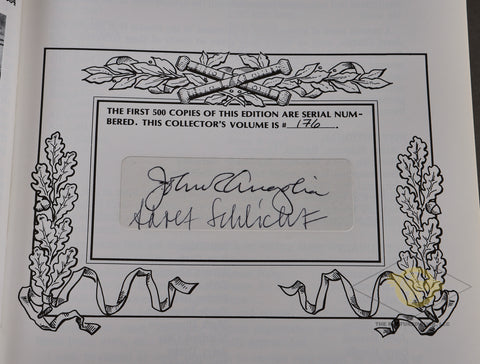 THE FIRST 500 COPIES OF THIS EDITION ARE SERIAL NUM-
BERED. THIS COLLECTOR'S VOLUME IS # 176.
John R Angolia
Schlicht